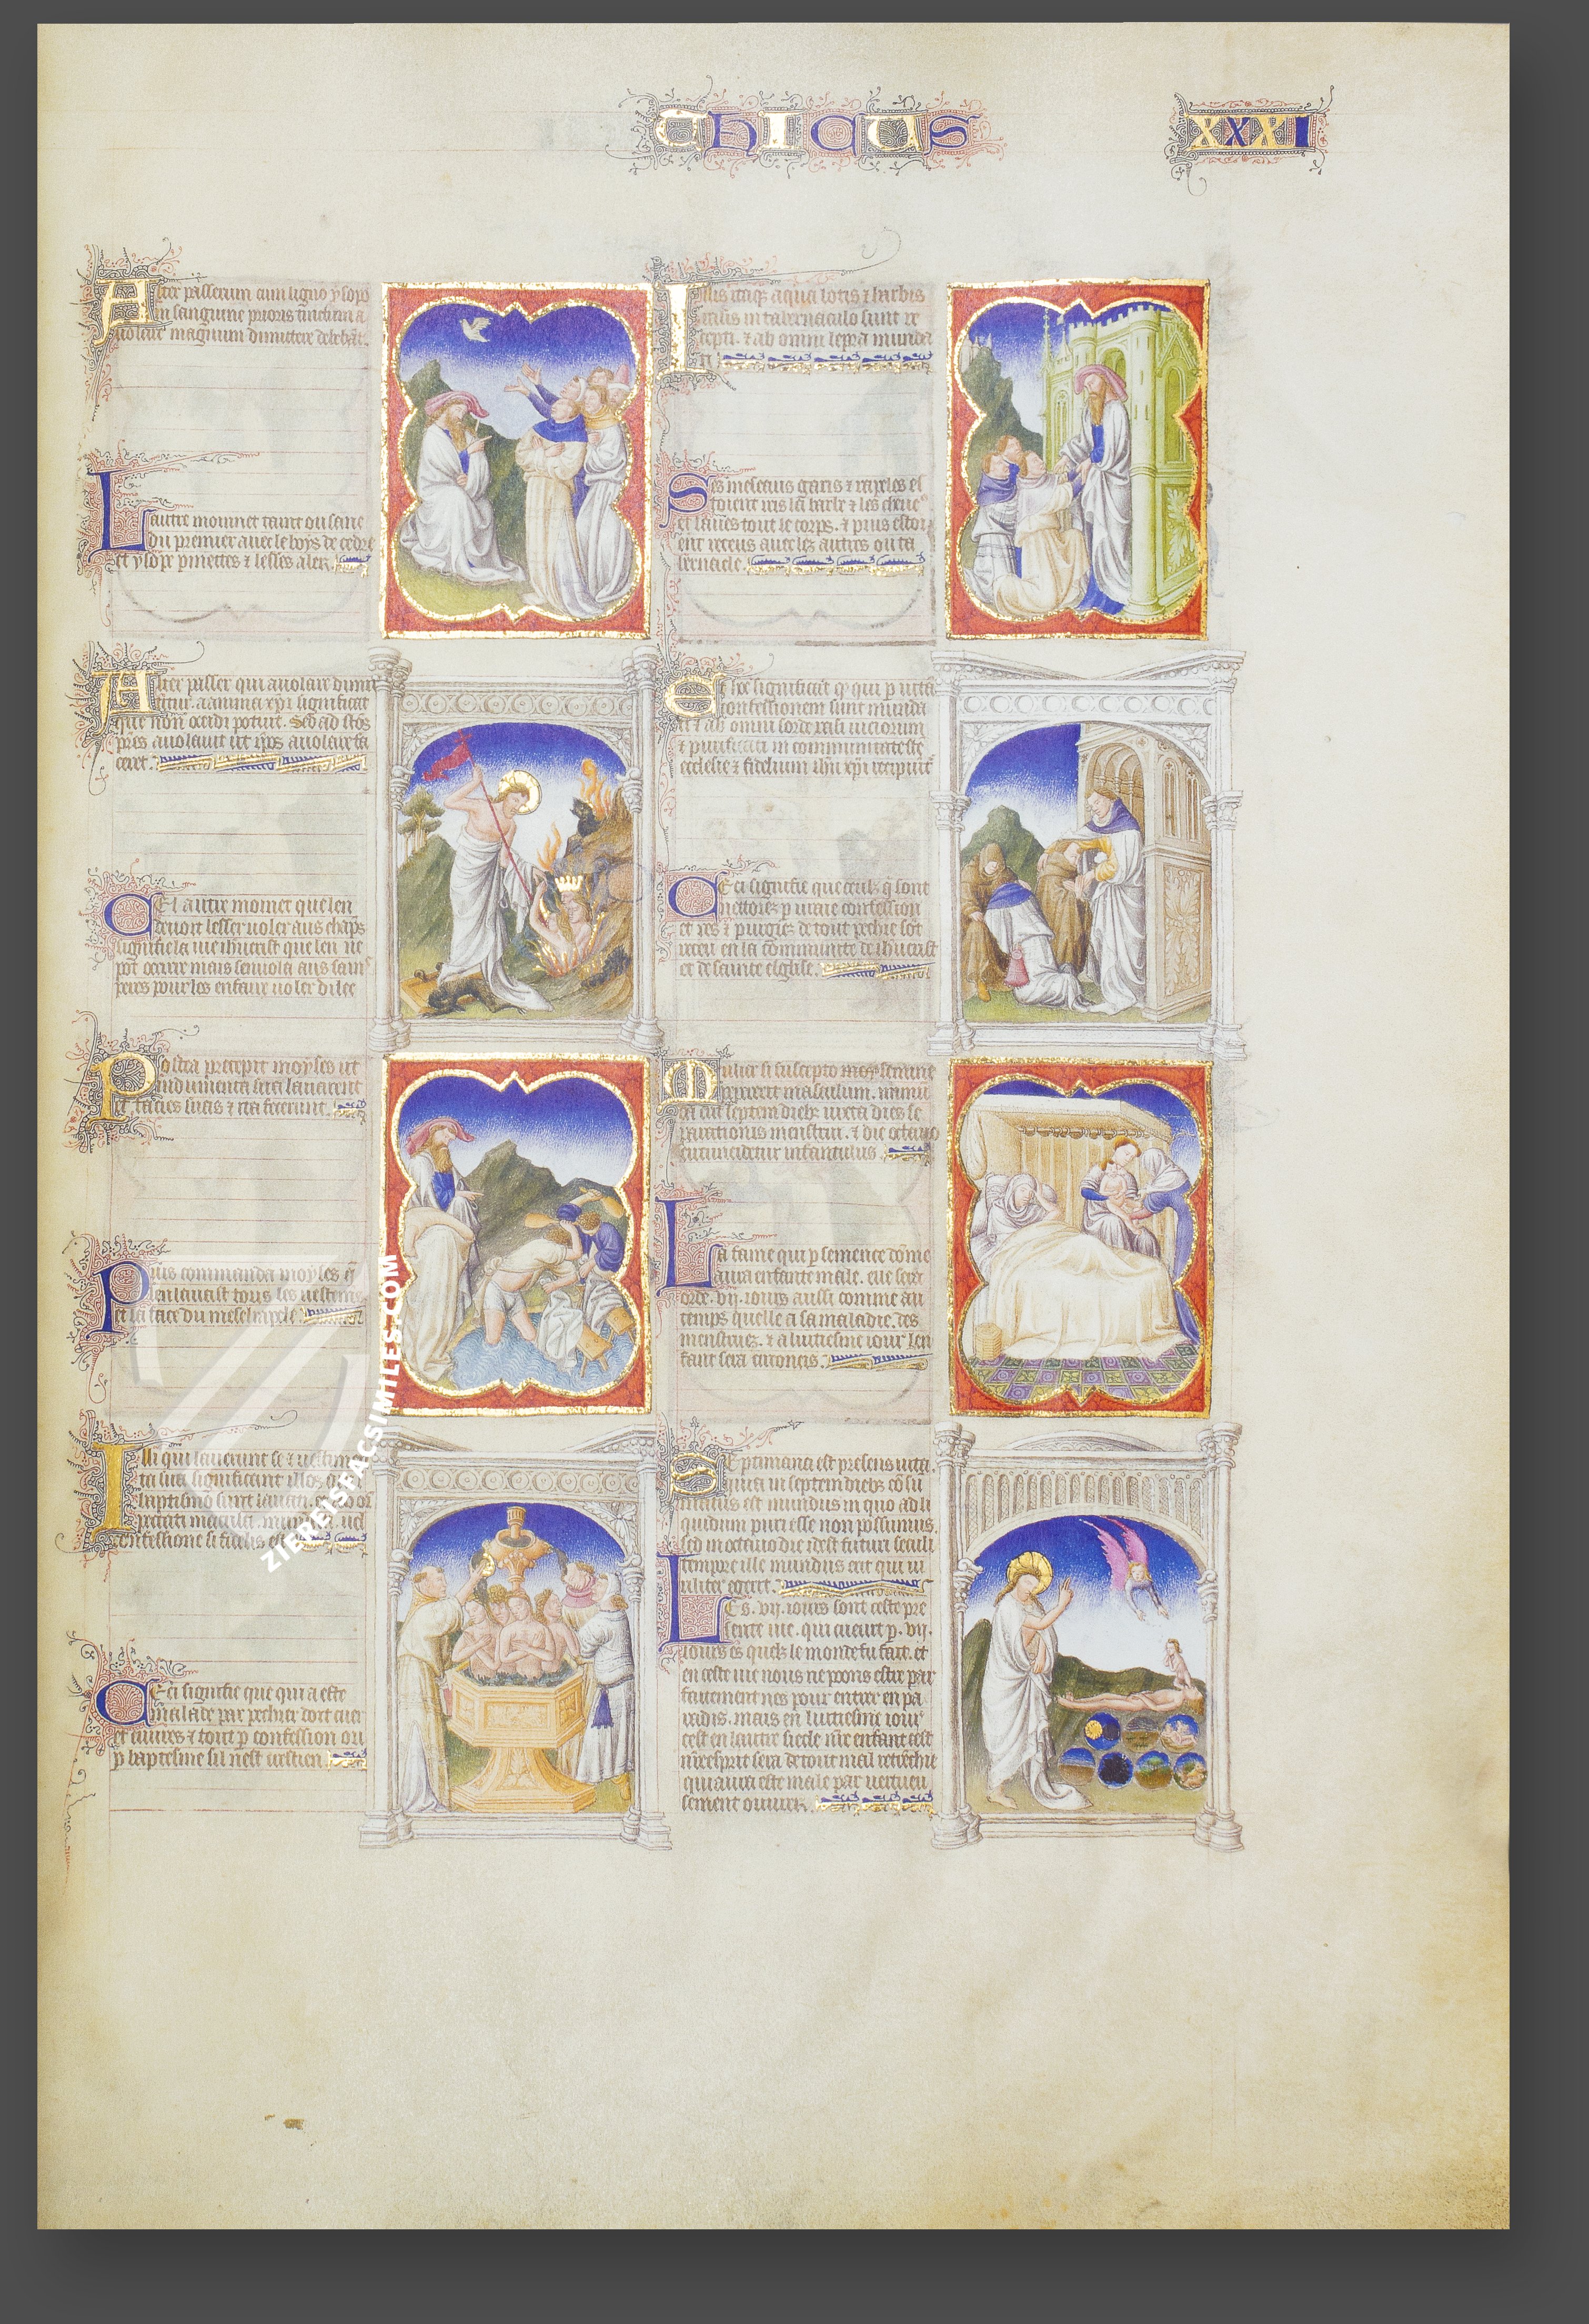 THICUS
XXXI
Alter passerum cum ligno ysopo
in sanguine prioris tinctum a
volare magnum dimittere debebat.
Lautre moinnet taint ou sanc
du premier avec le boys de cedre
et ysope
Alter passer qui avolare dimit
titur. anima xpi significat
que non occidi potuit. Sed ad stos
pres avolavit ut ipos avolare fa
ceret.
Cel autre moinet que len
devoit lesser voler aus chaps
signifie la vie ihucrist que len ne
pot occirre mais senvola aus sains
peres pour les enfaire voler du lec
Postea precepit moyses ut
indumenta sua lavarent
et facies suas et ita fecerunt.
Puis commanda moyses q
len lavast tous les vestemens
et la face du mesel
Illi qui laverunt se et vestimen
ta sua significant illos
baptismo sunt lavati
peccati macula
confessione
Ceci signifie que qui a este
malade par pechie doit avec
et tout p confession ou
p baptesme sil nest crestien.
Illis itaq aqua lotis et barbis
rasis in tabernaculo sunt re
cepti. et ab omni lepra munda
ti
Les meseaus garis et
toient res la barbe et les cheve
et laves tout le corps. et puis estoi
ent receus avec les autres ou ta
bernacle.
Et hoc significat q qui p iusta
confessionem sunt munda
ti et ab omni sorde rasi viciorum
et purificati in communitate ste
ecclesie et fidelium ihu xpi recipiut
Ceci signifie que ceulz q sont
nettoiez p vraie confession
et res et purgiez de tout pechie sot
receu en la communite de ihucrist
et de sainte eglise.
Mulier si suscepto semine
pepererit masculum. inmu
da erit septem dieb iuxta dies se
parationis menstrue. et die octavo
circumcidetur infantulus
La fame qui p semence dome
aura enfante male. elle sera
orde. vij. iours aussi comme au
temps quelle a sa maladie. des
menstrues. et a luitiesme iour len
fant sera circoncis.
Septimana est presens vita.
quia in septem dieb cosu
matus est mundus in quo ad li
quidum puri esse non possumus.
sed in octavo die idest futuri seculi
tempore ille mundus erit qui vi
riliter egerit.
Les. vij. iours sont ceste pre
sente vie. qui cueurt p. vij.
iours es quelz le monde fu fait. et
en ceste vie nous ne poons estre par
faitement nes pour entrer en pa
radis. mais en luitiesme iour
cest en lautre siecle nre enfant cest
nre esprit sera de tout mal retrenchie
qui aura este male par vertueu
sement ouvrer.
ZIEREISFACSIMILES.COM